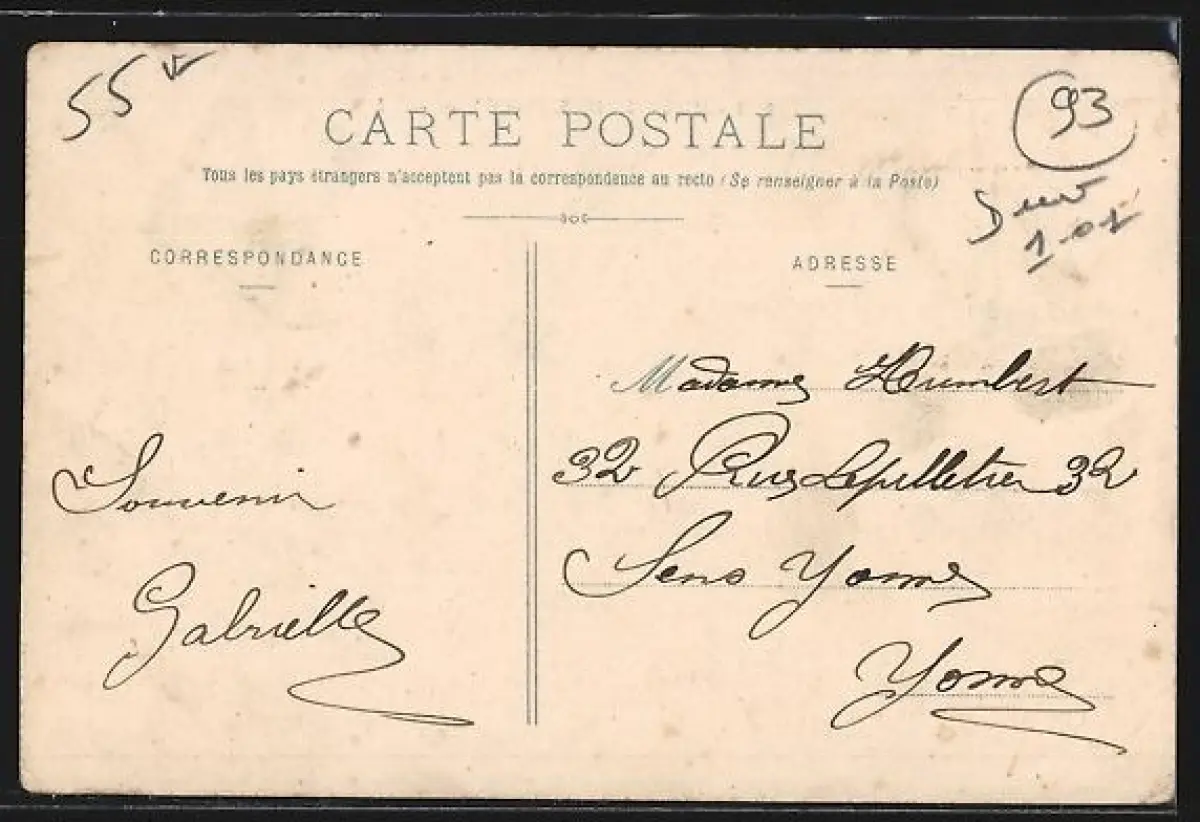 55
93
CARTE POSTALE
Tous les pays étrangers n'acceptent pas la correspondance au recto (Se renseigner à la Poste)
1-01
CORRESPONDANCE
ADRESSE
Souvenir
Gabrielle
Madame Humbert
32 Rue Lepelletier 32
Sens Yonne
Yonne